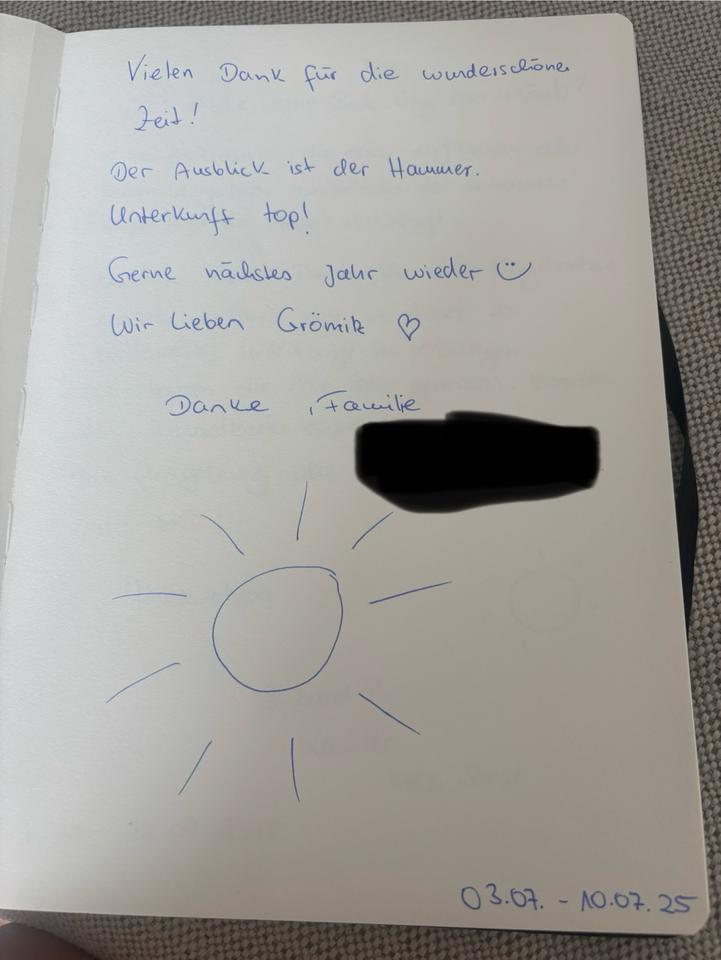 Vielen Dank für die wunderschöne
Zeit!
Der Ausblick ist der Hammer.
Unterkunft top!
Gerne nächstes Jahr wieder
Wir lieben Grömitz
Danke, Familie
03.07. - 10.07.25